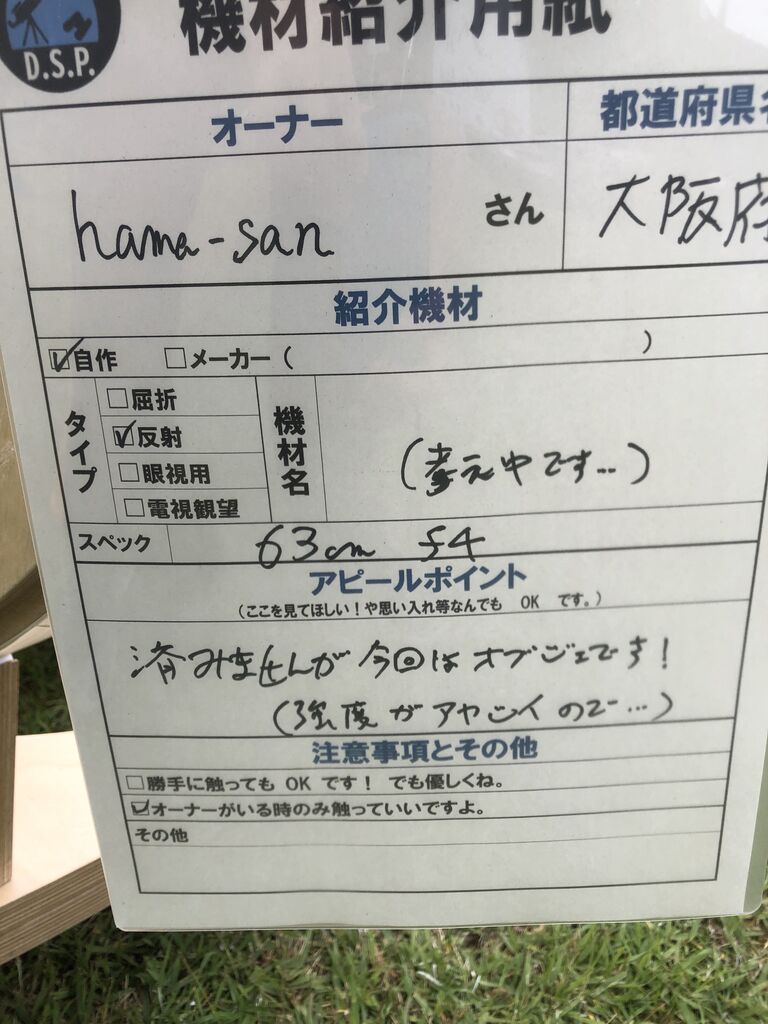 D.S.P.
機材紹介用紙
オーナー 都道府県名
hama-san さん 大阪府
紹介機材
☑自作 □メーカー（ ）
タイプ
□屈折
☑反射
□眼視用
□電視観望
機材名
(考え中です…)
スペック 63cm f4
アピールポイント
（ここを見てほしい！や思い入れ等なんでも OK です。）
済みませんが今回はオブジェです！
(強度がアヤシイので…)
注意事項とその他
□勝手に触っても OK です！ でも優しくね。
☑オーナーがいる時のみ触っていいですよ。
その他